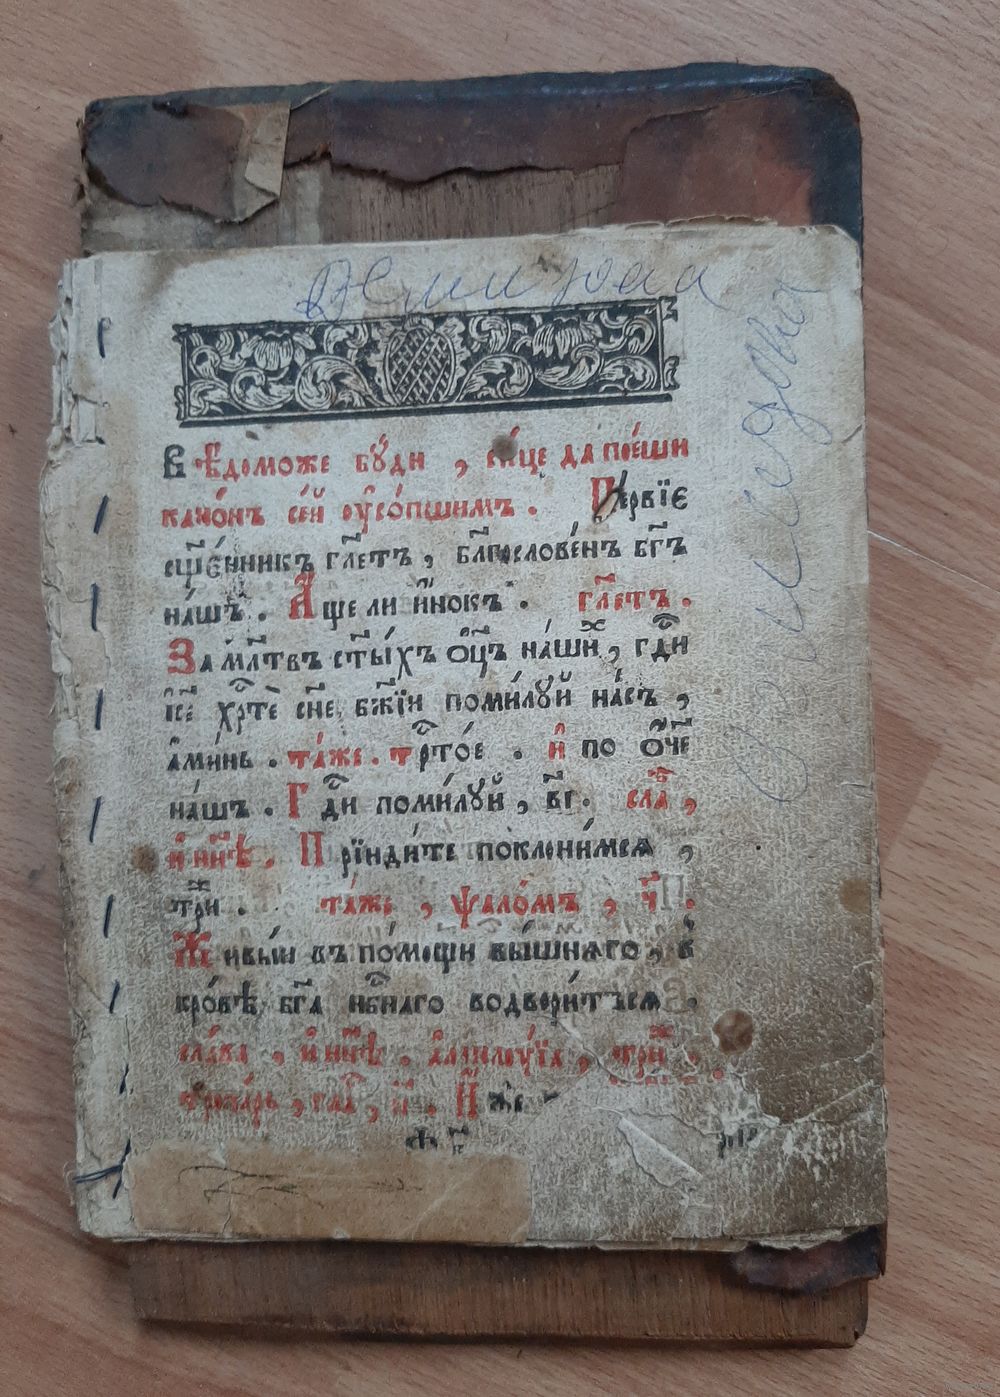 Вѣ́доможе бꙋ́ди , си́це да пое́ши
кано́нъ се́й ᲂу҆со́пшимъ . Пе́рвїе
сщ҃е́нникъ гл҃етъ , бл҃гослове́нъ бг҃ъ
на́шъ . А҆́ще ли и҆́нокъ . гл҃етъ .
За мл҃твъ ст҃ы́хъ ѻ҆ц҃ъ на́шиⷯ , гдⷭ҇и
і҆с҃е хрⷭ҇тѐ сн҃е бж҃їи поми́лꙋй на́съ ,
а҆ми́нь . та́же . трⷭ҇то́е . и҆ по ѻ҆́ч҃е
на́шъ . Гдⷭ҇и поми́лꙋй , в҃і . сла́ⷡ ,
и҆ нн҃ѣ . Прїиди́те поклони́мсѧ ,
три́ⷤ . та́же , ѱало́мъ , ч҃ .
Живы́й въ по́мощи вы́шнѧго , в
кро́вѣ бг҃а нбⷭ҇наго водвори́тъсѧ .
сла́ва , и҆ нн҃ѣ . а҆ллилꙋ́їа , три́ⷤ .
тропа́рь , гла́ⷭ , и҃ . И҆́же